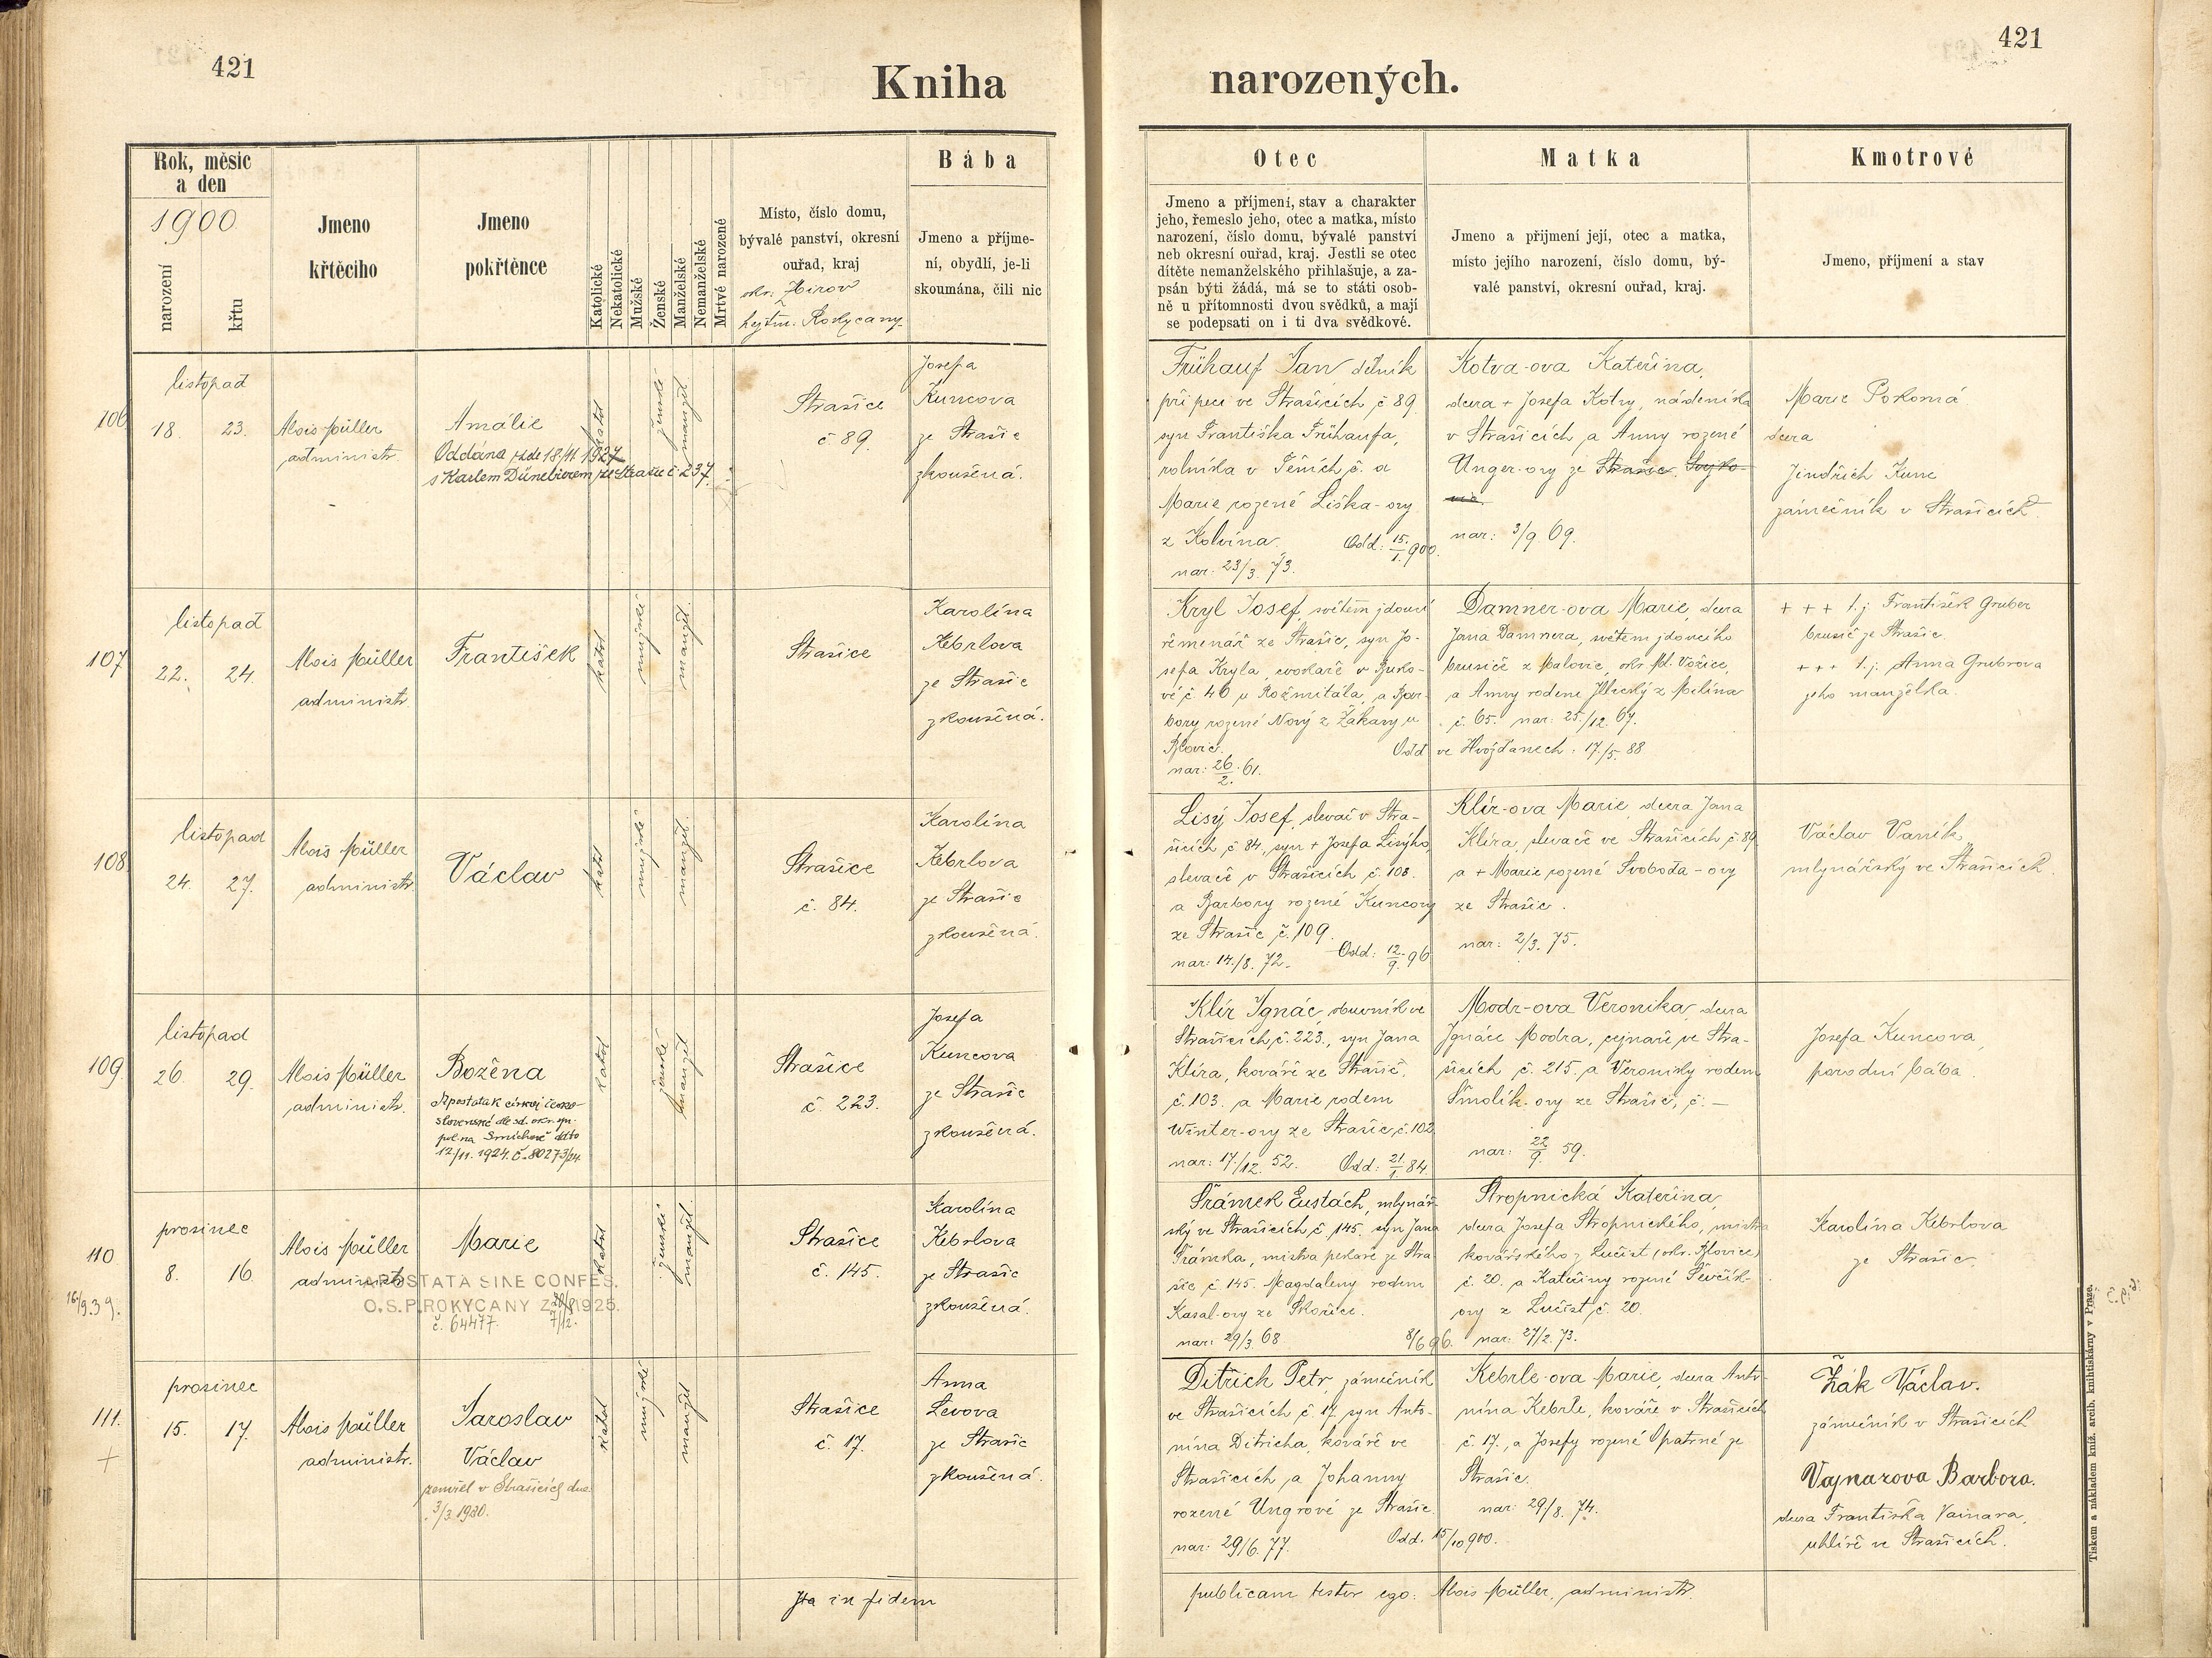 421
421
Kniha narozených.
Rok, měsíc
a den
1900
narození
křtu
Jmeno
křtěcího
Jmeno
pokřtěnce
Katolické
Nekatolické
Mužské
Ženské
Manželské
Nemanželské
Mrtvě narozené
Místo, číslo domu,
bývalé panství, okresní
ouřad, kraj
okr. Zbirov
hejtm. Rokycany
Bába
Jmeno a příjme-
ní, obydlí, je-li
skoumána, čili nic
Otec
Jmeno a příjmení, stav a charakter
jeho, řemeslo jeho, otec a matka, místo
narození, číslo domu, bývalé panství
neb okresní ouřad, kraj. Jestli se otec
dítěte nemanželského přihlašuje, a za-
psán býti žádá, má se to státi osob-
ně u přítomnosti dvou svědků, a mají
se podepsati on i ti dva svědkové.
Matka
Jmeno a příjmení její, otec a matka,
místo jejího narození, číslo domu, bý-
valé panství, okresní ouřad, kraj.
Kmotrové
Jmeno, příjmení a stav
106
listopad
18. 23.
Alois Müller
administr.
Amálie
Oddána zde 18/11 1927
s Karlem Dünebierem ze Strašic č 237.
katol
ženské
manžel.
Strašice
č 89.
Josefa
Kuncova
ze Strašic
zkoušená.
Frühauf Jan dělník
při peci ve Strašicích č 89
syn Františka Frühaufa,
rolníka v Těních č. a
Marie rozené Liška-ovy
z Kolvína. Odd: 15./1. 900.
nar: 23/3. 73.
Kotva-ova Kateřina,
dcera + Josefa Kotvy, nádeníka
v Strašicích a Anny rozené
Unger-ovy ze Strašic.
nar: 3/9. 69.
Marie Pokorná
dcera
Jindřich Kunc
zámečník v Strašicích
107
listopad
22. 24.
Alois Müller
administr.
František
katol
mužské
manžel.
Strašice
Karolína
Kebrlova
ze Strašic
zkoušená.
Kryl Josef, světem jdoucí
řemenář ze Strašic, syn Jo-
sefa Kryla, cvokaře v Buko-
vé č 46 u Rožmitála, a Bar-
bory rozené Nový z Žákavy u
Blovic. Odd ve Hvožďanech. 17./5. 88
nar: 26./2. 61.
Damner-ova Marie, dcera
Jana Damnera, světem jdoucího
brusiče z Malovic, okr. Ml. Vožice,
a Anny rodem z Milína
č. 65. nar: 25./12. 67.
+ + + t.j. František Gruber
brusič ze Strašic.
+ + + t.j. Anna Grubrova
jeho manželka.
108
listopad
24. 27.
Alois Müller
administr
Václav
katol
mužské
manžel.
Strašice
č. 84.
Karolína
Kebrlova
ze Strašic
zkoušená.
Lisý Josef, slevač v Stra-
šicích č 84, syn + Josefa Lisýho
slevače v Strašicích č. 108.
a Barbory rozené Kuncovy
ze Strašic č. 109.
nar: 14./8. 72. Odd: 12./9. 96
Klír-ova Marie, dcera Jana
Klíra, slevače ve Strašicích č. 89
a + Marie rozené Svoboda-ovy
ze Strašic.
nar: 2/3. 75.
Václav Vaník
mlynářský ve Strašicích.
109
listopad
26. 29.
Alois Müller
administr.
Božena
Apostata k církvi česko-
slovenské dle sd. okr. sp.
pol. na Smíchově ddto
12/11. 1924. č. 80273/24.
katol
ženské
manžel
Strašice
č. 223.
Josefa
Kuncova
ze Strašic
zkoušená.
Klír Ignác, obuvník ve
Strašicích č. 223., syn Jana
Klíra, kováře ze Strašic,
č. 103. a Marie rodem
Winter-ovy ze Strašic, č. 102
nar: 17./12. 52. Odd: 21/1. 84.
Modr-ova Veronika, dcera
Ignáce Modra, cejnaře ve Stra-
šicích č. 215. a Veroniky rodem
Smolík-ovy ze Strašic, č. —
nar: 22/9. 59.
Josefa Kuncova,
porodní bába.
110
16./9 39.
prosinec
8. 16.
Alois Müller
administr
Marie
APOSTATA SINE CONFES.
O.S.P. ROKYCANY ZE 1925.
č. 64477.
katol
ženské
manžel.
Strašice
č. 145.
Karolína
Kebrlova
ze Strašic
zkoušená.
Šrámek Eustách, mlynář-
ský ve Strašicích č. 145. syn Jana
Šrámka, mistra pekaře ze Stra-
šic č 145. Magdaleny rodem
Kasal-ovy ze Skořice.
nar: 29/3. 68. 8/6 96.
Stropnická Kateřina,
dcera Josefa Stropnického, mistra
kovářského z Lučišt (okr. Blovice)
č. 20. a Kateřiny rozené Ševčík-
ovy z Lučišt č. 20.
nar: 27/2. 73.
Karolína Kebrlova
ze Strašic.
111.
+
prosinec
15. 17.
Alois Müller
administr.
Jaroslav
Václav
zemřel v Strašicích dne
3/3 1980.
katol
mužské
manžel
Strašice
č. 17.
Anna
Levova
ze Strašic
zkoušená.
Ditrich Petr, zámečník
ve Strašicích č 17, syn Anto-
nína Ditricha, kováře ve
Strašicích a Johanny
rozené Ungrové ze Strašic.
nar: 29/6. 77. Odd. 15/10 900.
Kebrle-ova Marie, dcera Anto-
nína Kebrle, kováře v Strašicích
č. 17., a Josefy rozené Opatrné ze
Strašic.
nar: 29/8. 74.
Žák Václav.
zámečník v Strašicích
Vajnarova Barbora.
dcera Františka Vainara,
uhlíře ve Strašicích.
Ita in fidem publicam testor ego: Alois Müller, administr.
Tiskem a nákladem kníž. arcib. knihtiskárny v Praze.